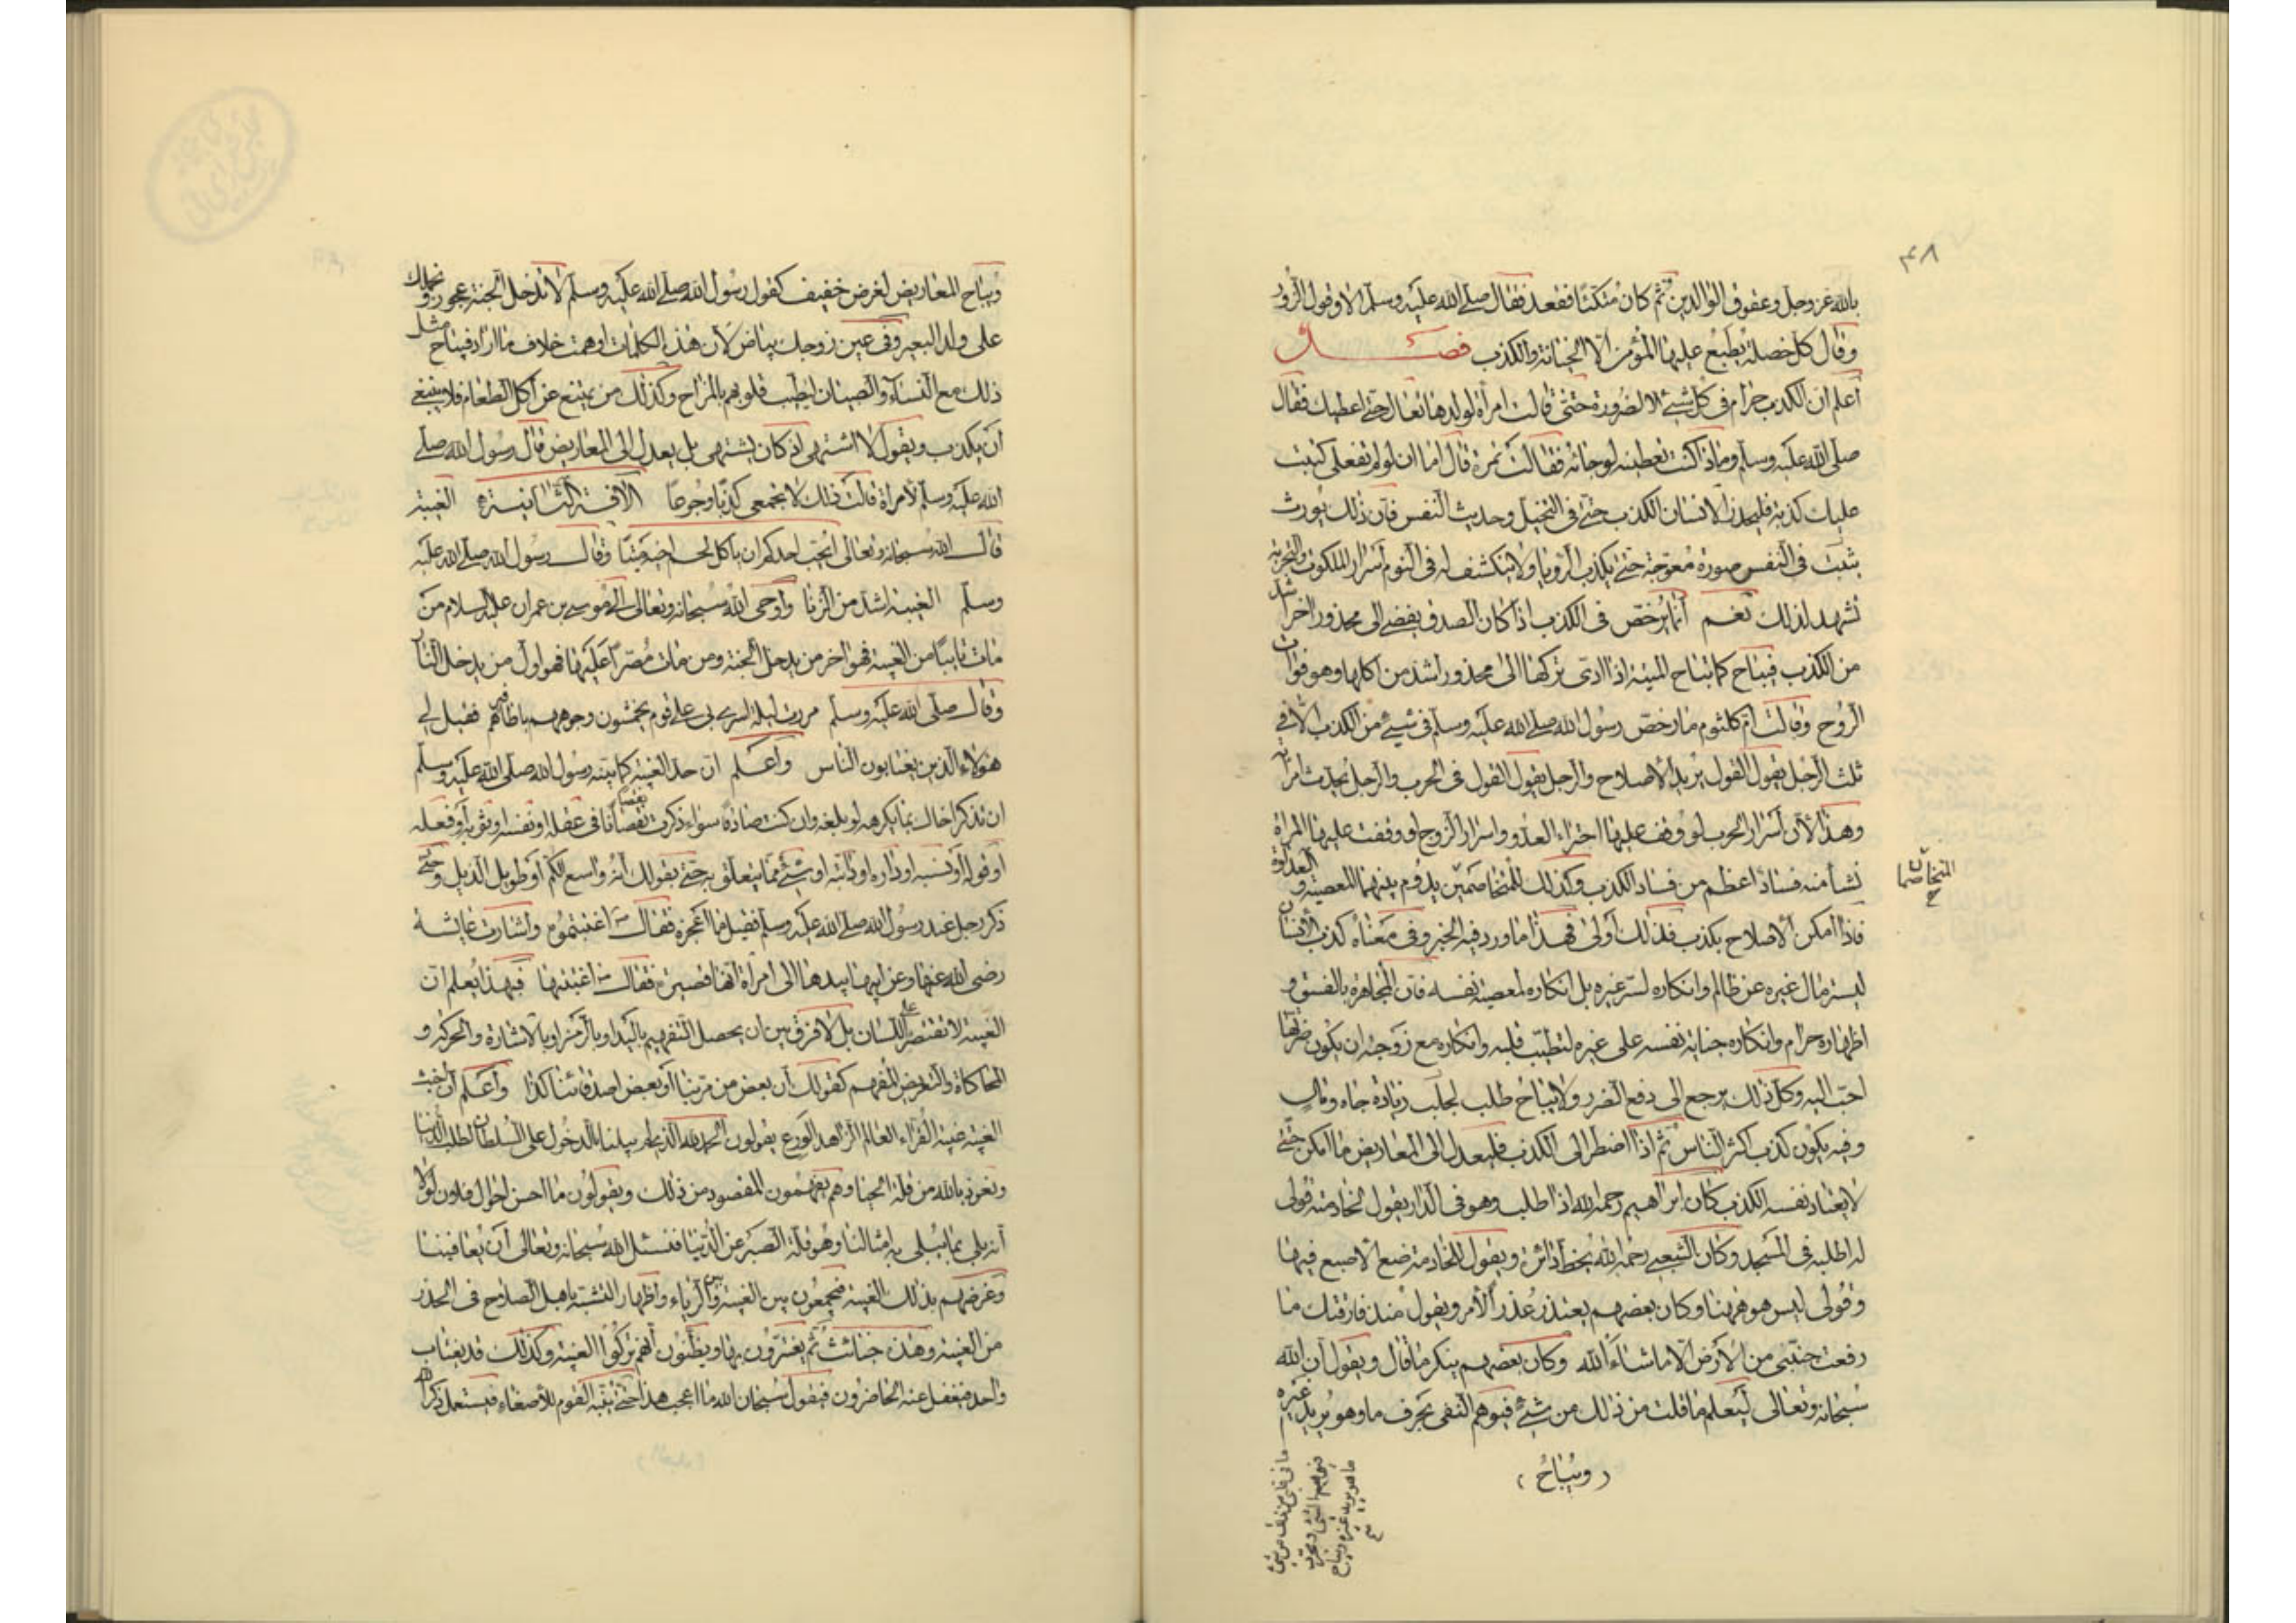 ٤٨
بالله عز وجل وعقوق الوالدين ثم كان متكئا فقعد فقال صلى الله عليه وسلم الا وقول الزور
وقال كل خصلة يطبع عليها المؤمن الا الخيانة والكذب فصل
اعلم ان الكذب حرام في كل شيء الا لضرورة حتى قالت امرأة لولدها تعال حتى اعطيك فقال
صلى الله عليه وسلم وماذا كنت تعطينه لو جائه فقالت تمرة قال اما ان لو لم تفعلي كتبت
عليك كذبة فليحذر الانسان الكذب حتى في التخيل وحديث النفس فان ذلك يورث
يثبت في النفس صورة معوجة حتى يكذب الرويا ولا ينكشف له في النوم اسرار الملكوت والتجربة
تشهد لذلك نعم انما يرخص في الكذب اذا كان الصدق يفضي الى محذور اخر اشد
من الكذب فيباح كما يباح الميتة اذا ادى تركها الى محذور اشد من اكلها وهو فوات
الروح وقالت ام كلثوم ما رخص رسول الله صلى الله عليه وسلم في شيء من الكذب الا في
ثلث الرجل يقول القول يريد الاصلاح والرجل يقول القول في الحرب والرجل يحدث امرأته
وهذا لان اسرار الحرب لو وقف عليها اجتراء العدو واسرار الزوج لو وقفت عليها المرأة
نشأ منه فساد اعظم من فساد الكذب وكذلك للمتخاصمين يدوم بينهما المعصية والعداوة
المتخاصمان
فاذا امكن الاصلاح بكذب فذلك اولى فهذا ما ورد فيه الخبر وفي معناه كذب الانسان
ليستر مال غيره عن ظالم وانكاره لستر غيره بل انكاره لمعصية نفسه فان المجاهرة بالفسق و
اظهاره حرام وانكاره جناية نفسه على غيره لتطيب قلبه وانكاره مع زوجته ان يكون ضرتها
احب اليه وكل ذلك يرجع الى دفع الضرر ولا يباح طلب لجلب زيادة جاه ومال
وفيه يكون كذب اكثر الناس ثم اذا اضطر الى الكذب فليعدل الى المعاريض ما امكن حتى
لا يعتاد نفسه الكذب كان ابراهيم رحمه الله اذا طلب وهو في الدار يقول لخادمته قولي
له اطلبه في المسجد وكان الشعبي رحمه الله يخط دائرة ويقول للخادمة ضع الاصبع فيها
وقولي ليس هو فيهنا وكان بعضهم يعتذر عند الامر ويقول منذ فارقتك ما
رفعت جنبي من الارض الا ما شاء الله وكان بعضهم ينكر ما قال ويقول ان الله
سبحانه وتعالى ليعلم ما قلت من ذلك من شيء فيوهم النفي بحرف ما وهو يريد غيره
(ويباح)
ويباح المعاريض لغرض خفيف كقول رسول الله صلى الله عليه وسلم لا تدخل الجنة عجوز ونحملك
على ولد البعير وفي عين زوجك بياض لان هذه الكلمات اوهمت خلاف ما اراد فيباح مثل
ذلك مع النساء والصبيان لطيب قلوبهم بالمزاح وكذلك من يمتنع عن اكل الطعام فلا ينبغي
ان يكذب ويقول لا اشتهي اذ كان يشتهي بل يعدل الى المعاريض قال رسول الله صلى
الله عليه وسلم لامرأة قالت ذلك لا تجمعي كذبا وجوعا الآفة الثانية الغيبة
قال الله سبحانه وتعالى ايحب احدكم ان ياكل لحم اخيه ميتا وقال رسول الله صلى الله عليه
وسلم الغيبة اشد من الزنا واوحى الله سبحانه وتعالى الى موسى بن عمران عليه السلام من
مات تايبا من الغيبة فهو اخر من يدخل الجنة ومن مات مصرا عليها فهو اول من يدخل النار
وقال صلى الله عليه وسلم مررت ليلة اسري بي على قوم يخمشون وجوههم باظافيرهم فقيل لي
هؤلاء الذين يغتابون الناس واعلم ان حد الغيبة كما بينه رسول الله صلى الله عليه وسلم
ان تذكر اخاك بما يكرهه لو بلغه وان كنت صادقا سواء ذكرت نقصانا في عقله او نفسه او ثوبه او فعله
او قوله او نسبه او داره او دابته او شيء مما يتعلق به حتى يقولك انه واسع الكم او طويل الذيل وحتى
ذكر رجل عند رسول الله صلى الله عليه وسلم فقيل ما اعجزه فقال اغتبتموه واشارت عايشة
رضي الله عنها وعن ابيها بيدها الى امرأة انها قصيرة فقال اغتبتها فبهذا يعلم ان
الغيبة لا تقتصر على اللسان بل لا فرق بين ان يحصل التفهيم باليد او بالرمز او بالاشارة والحركة و
المحاكاة والتعريض المفهم كقولك ان بعض من قربنا او بعض اصدقائنا كذا واعلم ان اخبث
الغيبة غيبة القراء العالم الزاهد الورع يقولون الحمد لله الذي لم يبلنا بالدخول على السلطان لطلب الدنيا
ونعوذ بالله من قلة الحيا وهم يفهمون المقصود من ذلك ويقولون ما احسن احوال فلان لولا
انه بلي بما يبتلي به امثالنا وهو قلة الصبر عن الدنيا فنسئل الله سبحانه وتعالى ان يعافينا
وغرضهم بذلك الغيبة فيجمعون بين الغيبة والرياء واظهار التشبه باهل الصلاح في الحذر
من الغيبة وهذه خبائث ثم يغترون بها ويظنون انهم تركوا الغيبة وكذلك قد يغتاب
واحد فيغفل عنه الحاضرون فيقول سبحان الله ما اعجب هذا حتى ينتبه القوم للاصغاء فيستعمل ذكر الله